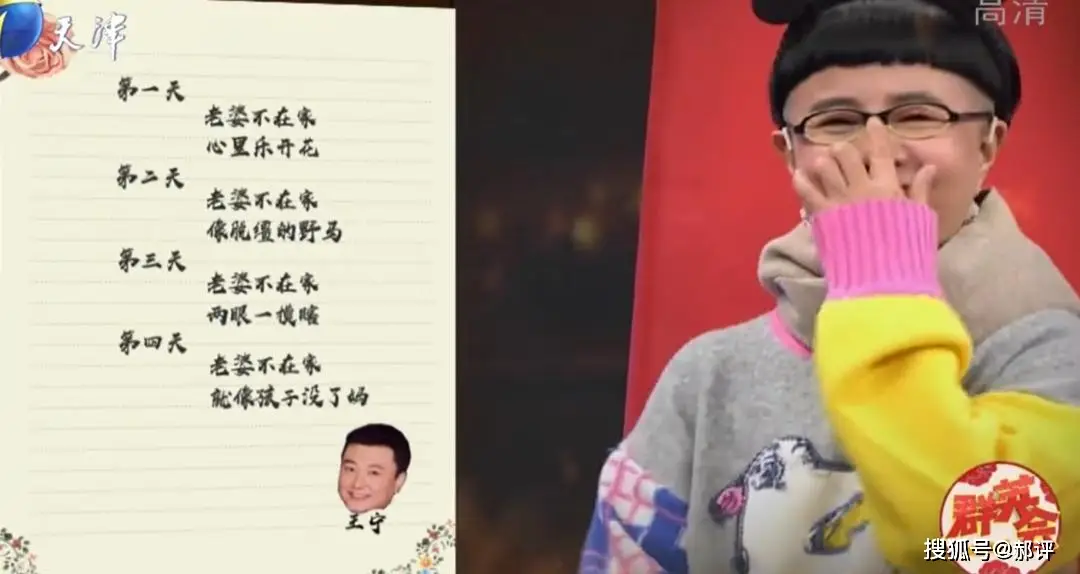 天津
高清
第一天
老婆不在家
心里乐开花
第二天
老婆不在家
像脱缰的野马
第三天
老婆不在家
两眼一摸瞎
第四天
老婆不在家
就像孩子没了妈
王宁
群英会
搜狐号@郝评